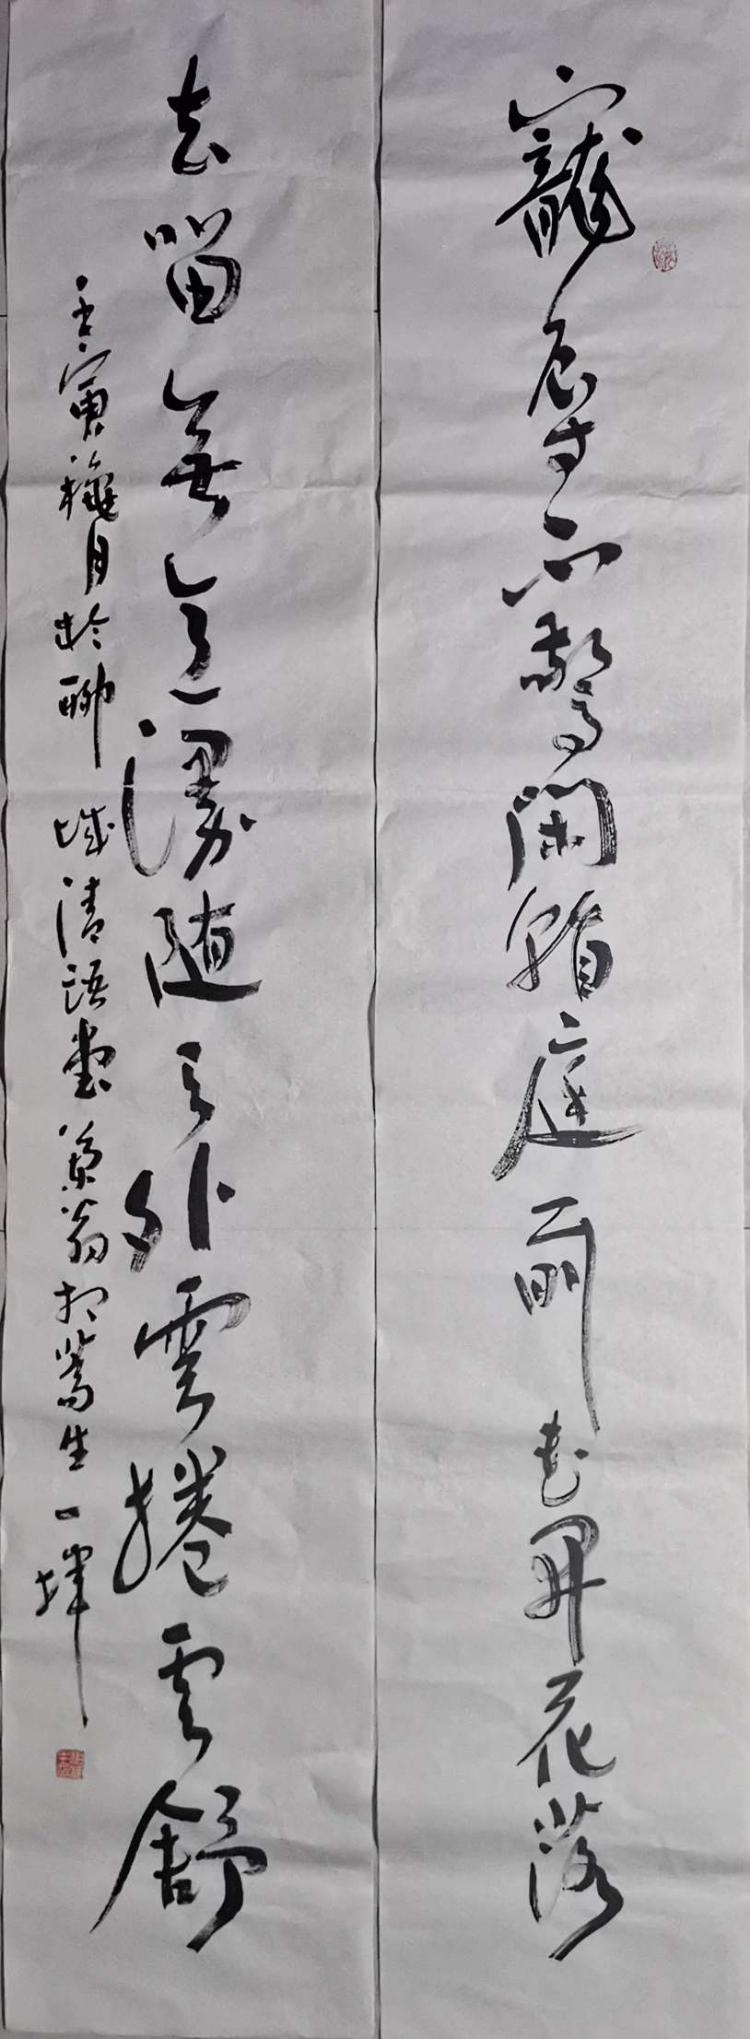 寵辱不驚閑看庭前花開花落
去留無意漫随天外雲捲雲舒
壬寅月於聊城清語堂翁生一揮